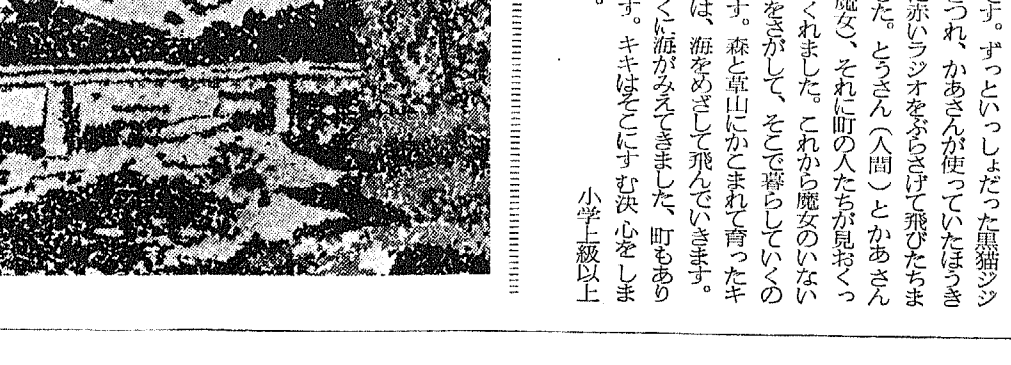 す。ずっといっしょだった黒猫ジジ
つれ、かあさんが使っていたほうき
赤いラジオをぶらさげて飛びたちま
た。とうさん（人間）とかあさん
魔女）、それに町の人たちが見おくっ
くれました。これから魔女のいない
をさがして、そこで暮らしていくの
す。森と草山にかこまれて育ったキ
は、海をめざして飛んでいきます。
くに海がみえてきました、町もあり
す。キキはそこにすむ決心をしま
。
小学上級以上